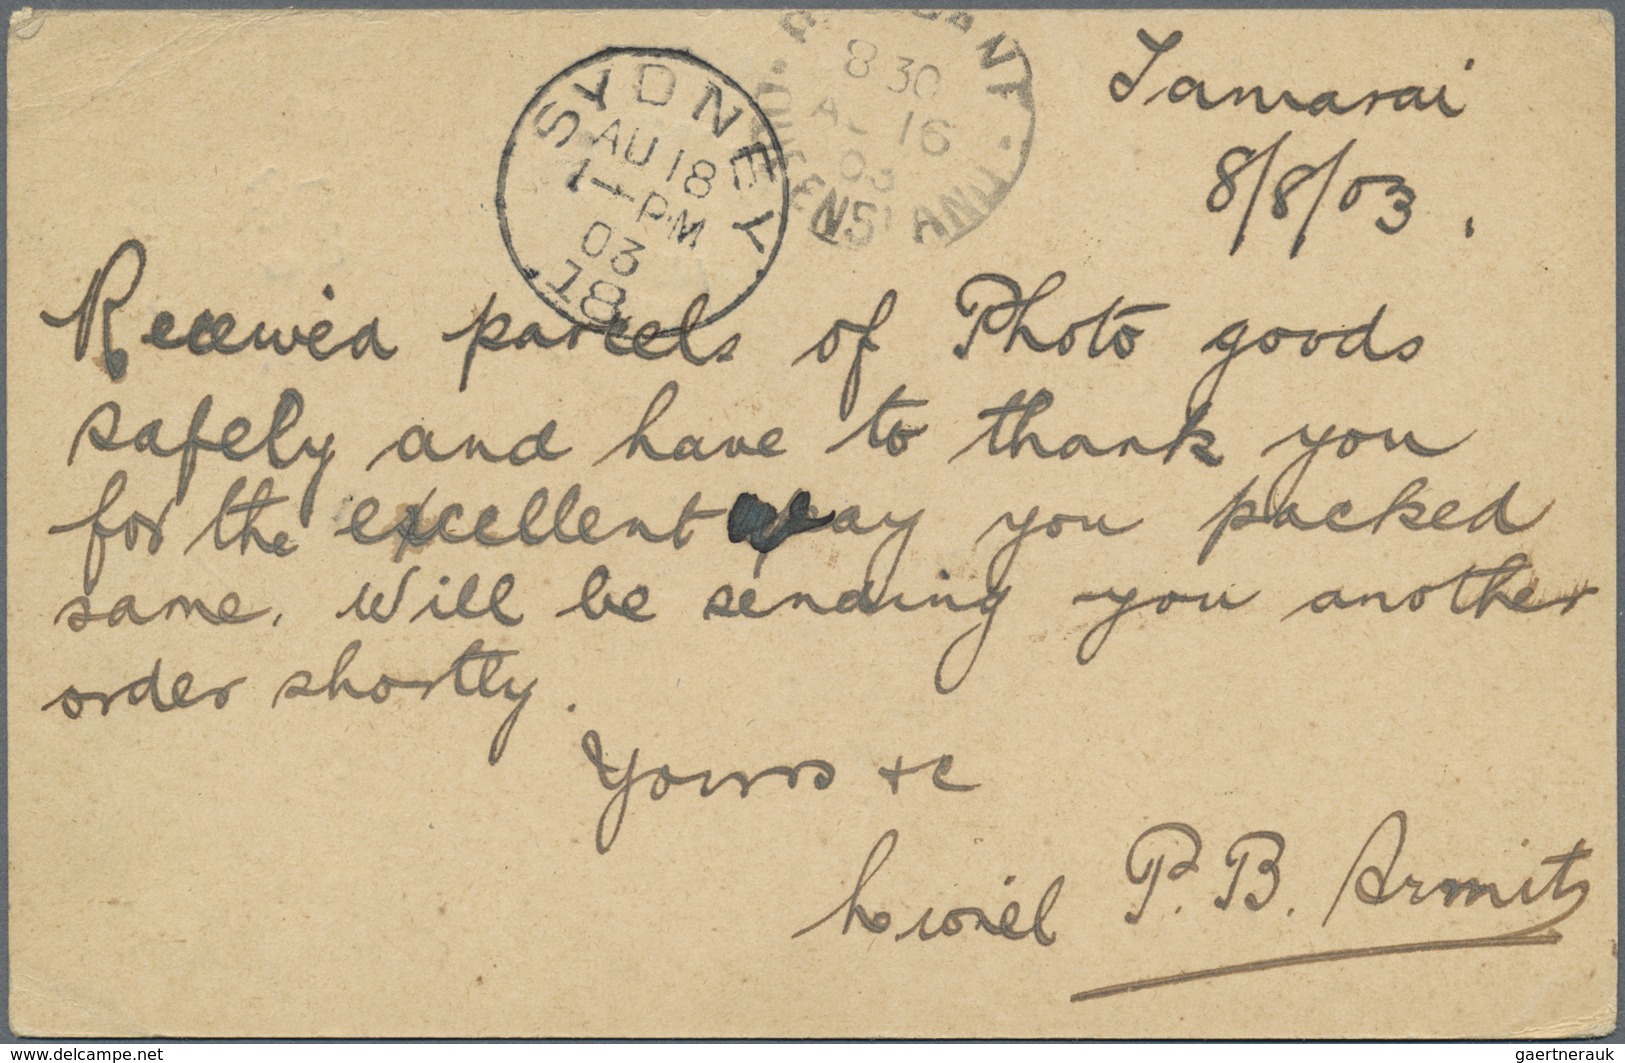 SYDNEY
AU 18
1—PM
03
18
8 30
16
03
QUEENSLAND
Samarai
8/8/03.
Received parcels of Photo goods
safely and have to thank you
for the excellent way you packed
same. Will be sending you another
order shortly.
Yours &c
Lionel P. B. Armit
delcampe.net
gaertnerauk